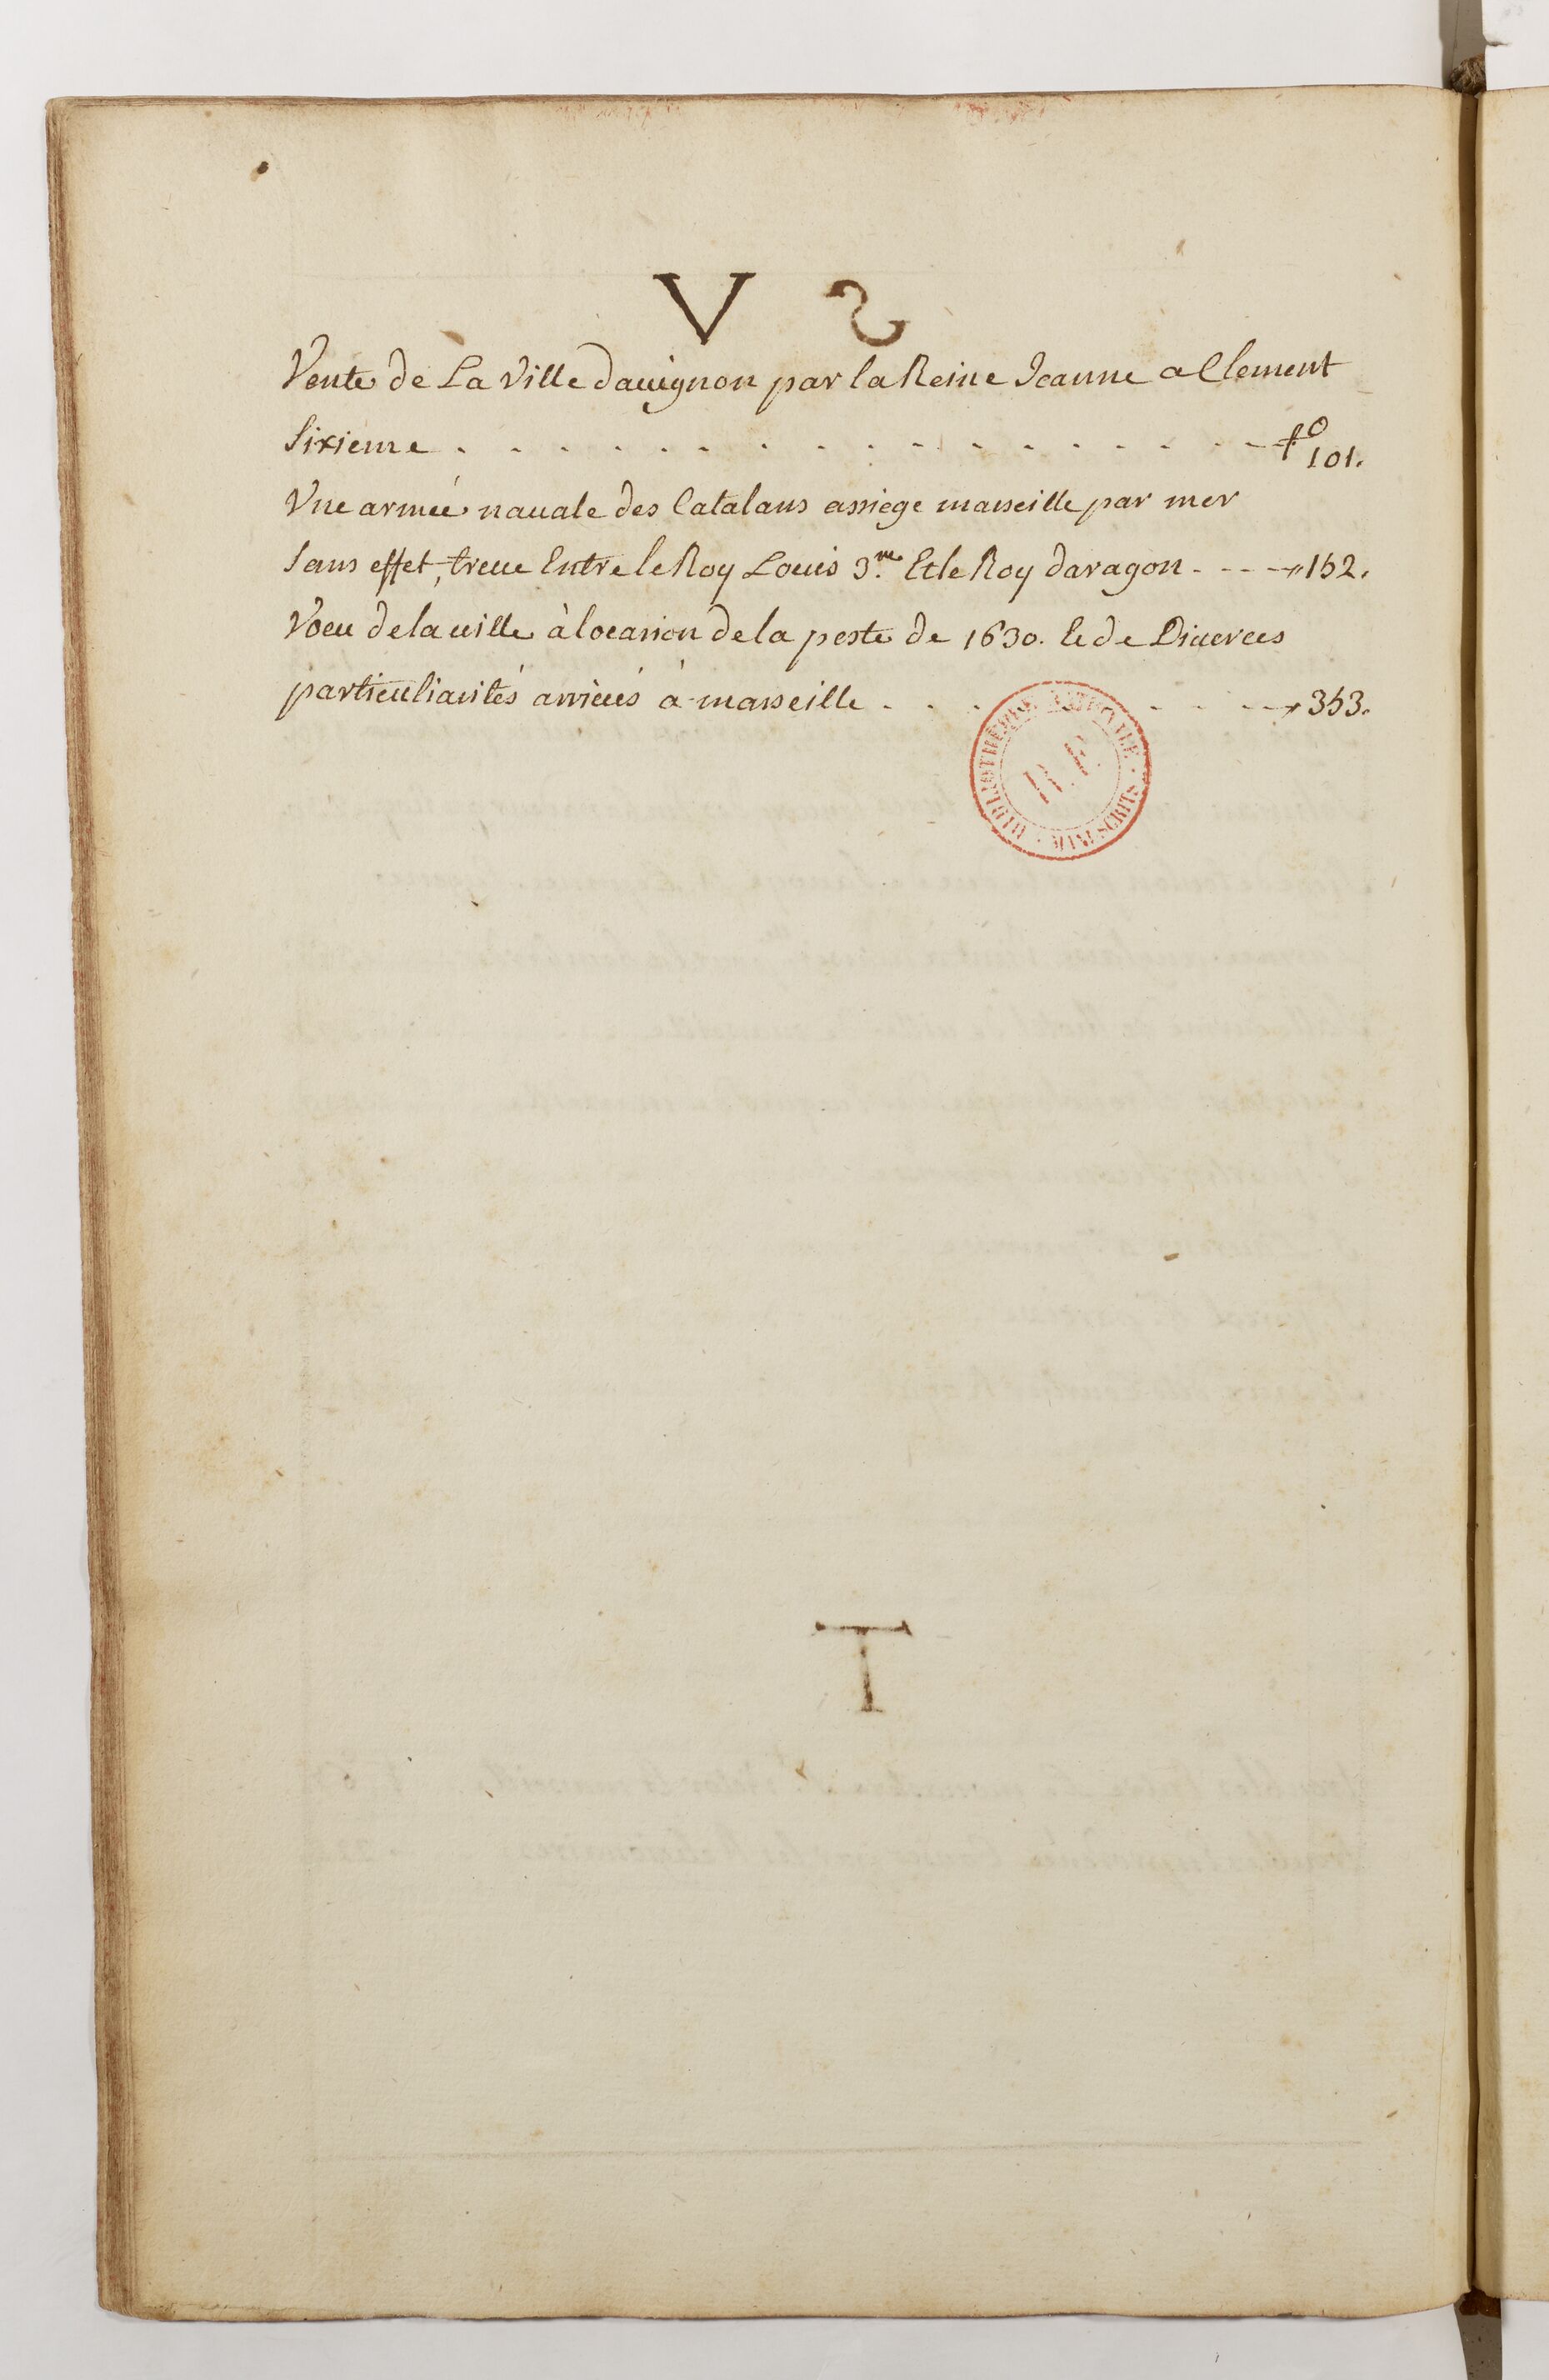 V
Vente de La Ville dauignon par la Reine Jeanne a Clement
Sixieme . . . . . . . . . . . . . . . . fo 101.
Vne armée nauale des Catalans assiege marseille par mer
sans effet, treue Entre le Roy Louis 3.me Et le Roy daragon - - - - 152.
Voeu de la uille à locasion de la peste de 1630. le de Diuerces
particuliarités arriués à marseille . . . . . . 353.
BIBLIOTHÈQUE NATIONALE
R.F.
MANUSCRITS